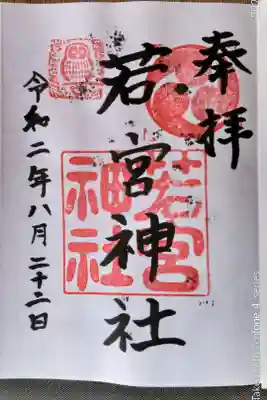 奉拝
若宮神社
若宮
神社
令和二年八月二十二日